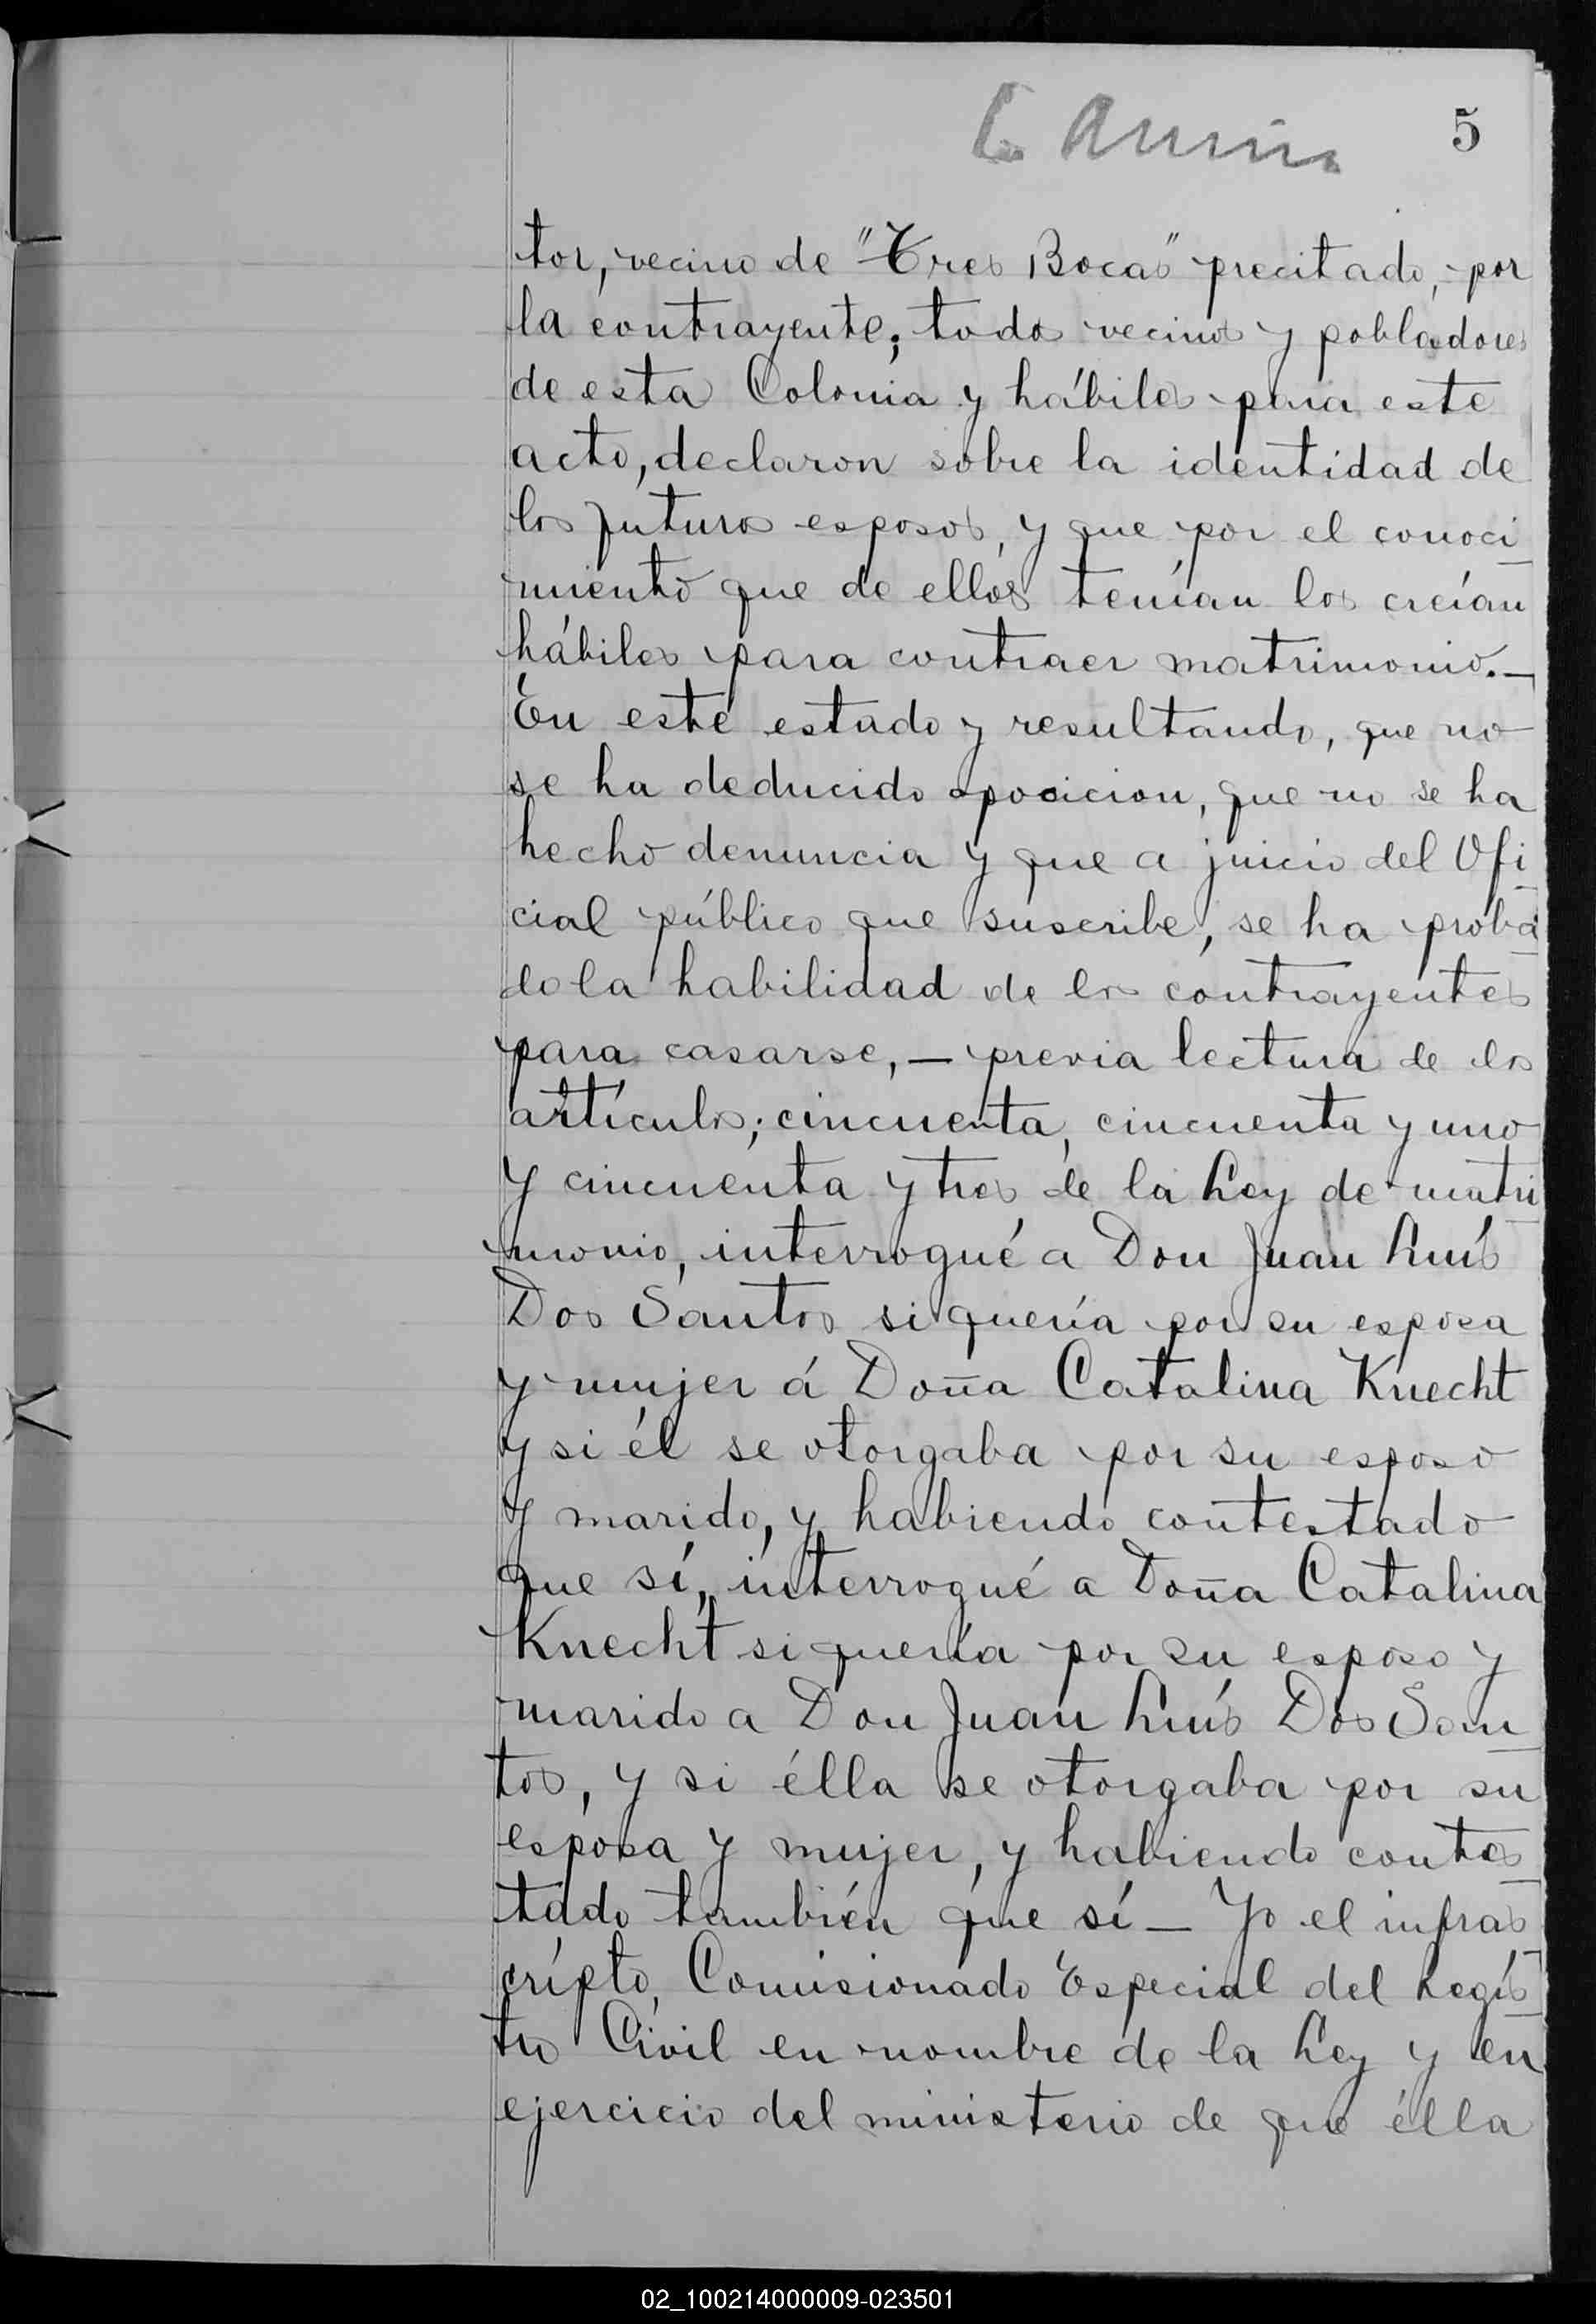 5
tor, vecino de "Tres Bocas" precitado, por
la contrayente; todos vecinos y pobladores
de esta Colonia y hábiles para este
acto, declaron sobre la identidad de
los futuros esposos, y que por el conoci
miento que de ellos tenían los creían
hábiles para contraer matrimonio.—
En este estado y resultando, que no
se ha deducido oposicion, que no se ha
hecho denuncia y que a juicio del Ofi
cial público que suscribe, se ha proba
do la habilidad de los contrayentes
para casarse, — previa lectura de los
artículos; cincuenta, cincuenta y uno
y cincuenta y tres de la Ley de matri
monio, interrogué a Don Juan Luís
Dos Santos si quería por su esposa
y mujer á Doña Catalina Knecht
y si él se otorgaba por su esposo
y marido, y habiendo contestado
que sí, interrogué a Doña Catalina
Knecht si quería por su esposo y
marido a Don Juan Luís Dos San
tos, y si élla se otorgaba por su
esposa y mujer, y habiendo contes
tado también que sí — Yo el infras
crípto, Comisionado Especial del Regís
tro Civil en nombre de la Ley y en
ejercicio del ministerio de que élla
02_100214000009-023501